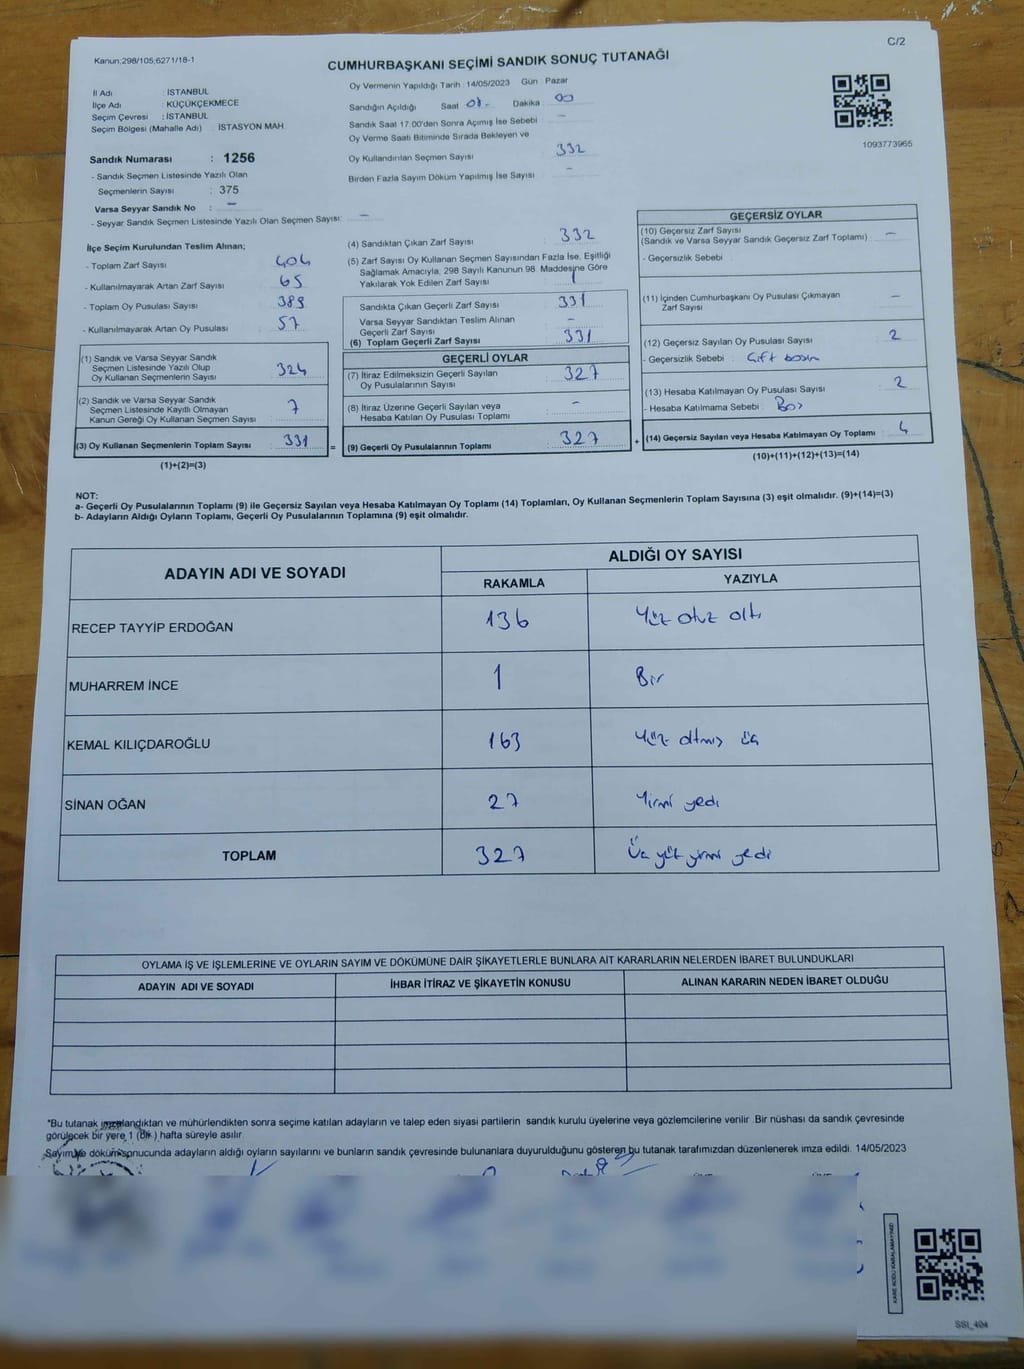 C/2
Kanun;298/105;6271/18-1
CUMHURBAŞKANI SEÇİMİ SANDIK SONUÇ TUTANAĞI
İl Adı : İSTANBUL
İlçe Adı : KÜÇÜKÇEKMECE
Seçim Çevresi : İSTANBUL
Seçim Bölgesi (Mahalle Adı) : İSTASYON MAH.
Sandık Numarası : 1256
- Sandık Seçmen Listesinde Yazılı Olan
Seçmenlerin Sayısı : 375
Varsa Seyyar Sandık No : -
- Seyyar Sandık Seçmen Listesinde Yazılı Olan Seçmen Sayısı: -
Oy Vermenin Yapıldığı Tarih : 14/05/2023 Gün : Pazar
Sandığın Açıldığı Saat 08- Dakika 00
Sandık Saat 17:00'den Sonra Açımış İse Sebebi -
Oy Verme Saati Bitiminde Sırada Bekleyen ve
Oy Kullandırılan Seçmen Sayısı 332
Birden Fazla Sayım Döküm Yapılmış İse Sayısı -
1093773965
İlçe Seçim Kurulundan Teslim Alınan;
- Toplam Zarf Sayısı 404
- Kullanılmayarak Artan Zarf Sayısı 65
- Toplam Oy Pusulası Sayısı 389
- Kullanılmayarak Artan Oy Pusulası 57
(1) Sandık ve Varsa Seyyar Sandık
Seçmen Listesinde Yazılı Olup
Oy Kullanan Seçmenlerin Sayısı 324
(2) Sandık ve Varsa Seyyar Sandık
Seçmen Listesinde Kayıtlı Olmayan
Kanun Gereği Oy Kullanan Seçmen Sayısı 7
(3) Oy Kullanan Seçmenlerin Toplam Sayısı 331 =
(1)+(2)=(3)
(4) Sandıktan Çıkan Zarf Sayısı 332
(5) Zarf Sayısı Oy Kullanan Seçmen Sayısından Fazla İse, Eşitliği
Sağlamak Amacıyla, 298 Sayılı Kanunun 98. Maddesine Göre
Yakılarak Yok Edilen Zarf Sayısı 1
Sandıkta Çıkan Geçerli Zarf Sayısı 331
Varsa Seyyar Sandıktan Teslim Alınan
Geçerli Zarf Sayısı -
(6) Toplam Geçerli Zarf Sayısı 331
GEÇERLİ OYLAR
(7) İtiraz Edilmeksizin Geçerli Sayılan
Oy Pusulalarının Sayısı 327
(8) İtiraz Üzerine Geçerli Sayılan veya
Hesaba Katılan Oy Pusulası Toplamı -
(9) Geçerli Oy Pusulalarının Toplamı 327 +
GEÇERSİZ OYLAR
(10) Geçersiz Zarf Sayısı -
(Sandık ve Varsa Seyyar Sandık Geçersiz Zarf Toplamı)
- Geçersizlik Sebebi :
(11) İçinden Cumhurbaşkanı Oy Pusulası Çıkmayan
Zarf Sayısı -
(12) Geçersiz Sayılan Oy Pusulası Sayısı 2
- Geçersizlik Sebebi : Çift basım
(13) Hesaba Katılmayan Oy Pusulası Sayısı 2
- Hesaba Katılmama Sebebi : Boş
(14) Geçersiz Sayılan veya Hesaba Katılmayan Oy Toplamı 4
(10)+(11)+(12)+(13)=(14)
NOT:
a- Geçerli Oy Pusulalarının Toplamı (9) ile Geçersiz Sayılan veya Hesaba Katılmayan Oy Toplamı (14) Toplamları, Oy Kullanan Seçmenlerin Toplam Sayısına (3) eşit olmalıdır. (9)+(14)=(3)
b- Adayların Aldığı Oyların Toplamı, Geçerli Oy Pusulalarının Toplamına (9) eşit olmalıdır.
ADAYIN ADI VE SOYADI
ALDIĞI OY SAYISI
RAKAMLA YAZIYLA
RECEP TAYYİP ERDOĞAN 136 Yüz otuz altı
MUHARREM İNCE 1 Bir
KEMAL KILIÇDAROĞLU 163 Yüz altmış üç
SİNAN OĞAN 27 Yirmi yedi
TOPLAM 327 Üç yüz yirmi yedi
OYLAMA İŞ VE İŞLEMLERİNE VE OYLARIN SAYIM VE DÖKÜMÜNE DAİR ŞİKAYETLERLE BUNLARA AİT KARARLARIN NELERDEN İBARET BULUNDUKLARI
ADAYIN ADI VE SOYADI İHBAR İTİRAZ VE ŞİKAYETİN KONUSU ALINAN KARARIN NEDEN İBARET OLDUĞU
*Bu tutanak imzalandıktan ve mühürlendikten sonra seçime katılan adayların ve talep eden siyasi partilerin sandık kurulu üyelerine veya gözlemcilerine verilir. Bir nüshası da sandık çevresinde
görülecek bir yere 1 (Bir ) hafta süreyle asılır.
Sayım ve döküm sonucunda adayların aldığı oyların sayılarını ve bunların sandık çevresinde bulunanlara duyurulduğunu gösteren bu tutanak tarafımızdan düzenlenerek imza edildi. 14/05/2023
KARE KODU KARALAMAYINIZ!
SSI_404